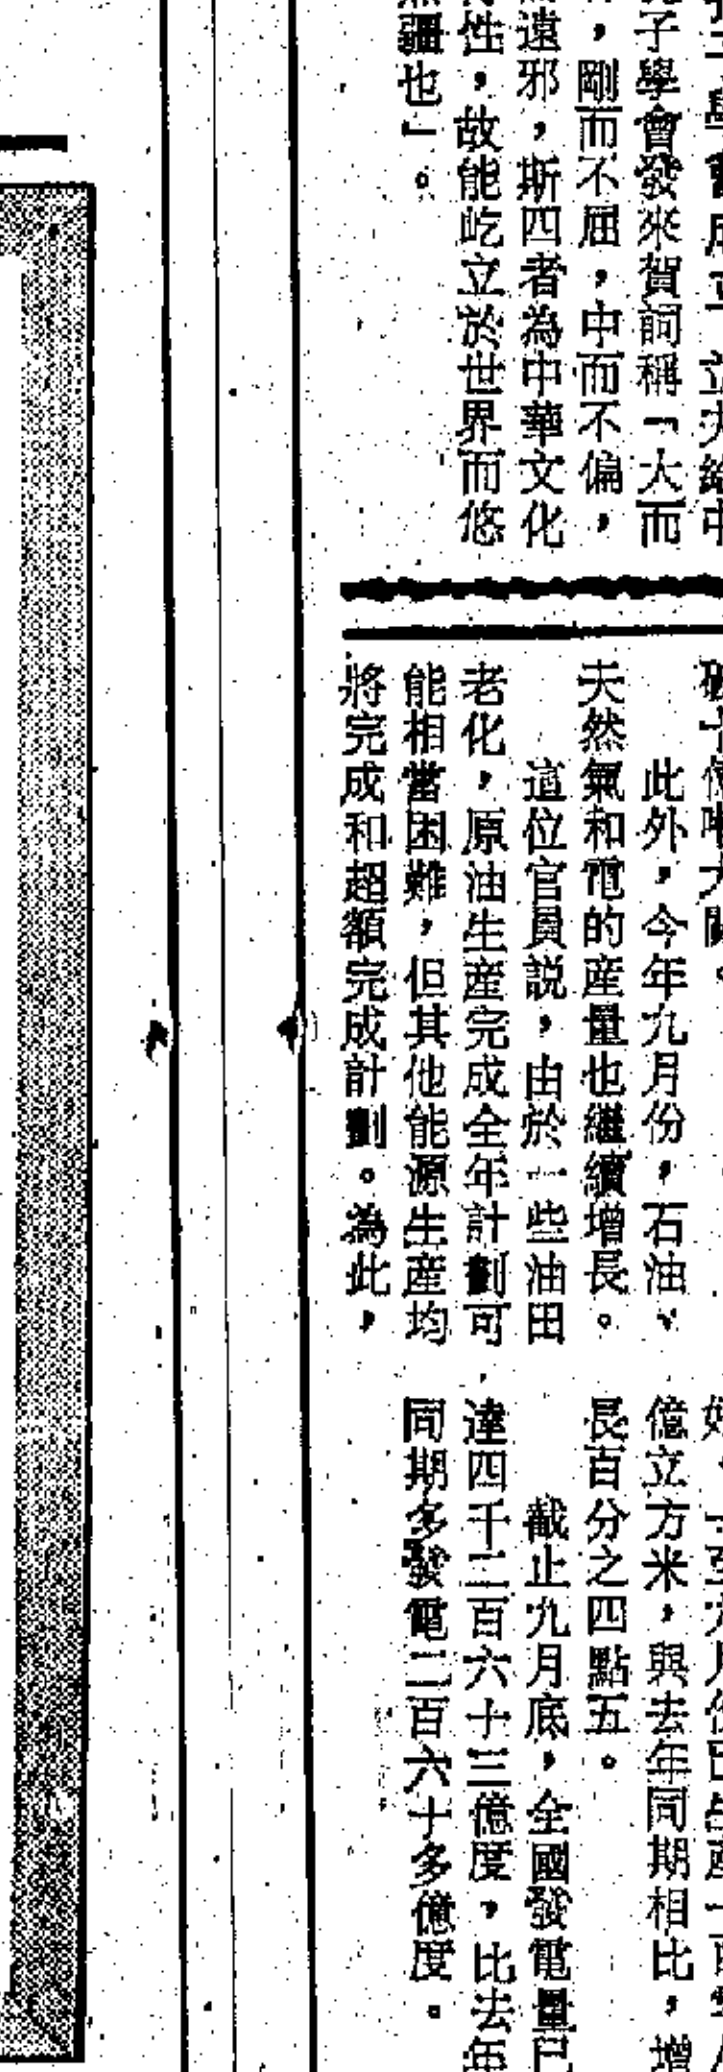 子學會發來賀詞稱「大而
，剛而不屈，中而不偏，
遠邪，斯四者為中華文化
性，故能屹立於世界而悠
疆也」。
此外，今年九月份，石油、
天然氣和電的産量也繼續增長。
這位官員説，由於一些油田
老化，原油生産完成全年計劃可
能相當困難，但其他能源生産均
將完成和超額完成計劃。為此，
億立方米，與去年同期相比，增
長百分之四點五。
截止九月底，全國發電量已
達四千二百六十三億度，比去年
同期多發電二百六十多億度。